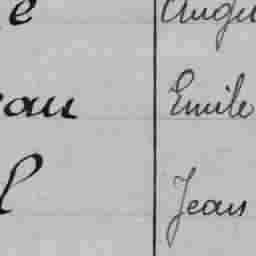 e Augu
eau Emile
l Jean